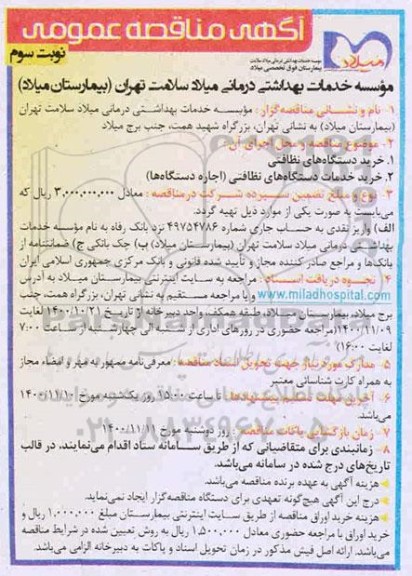 آگهی مناقصه عمومی
نوبت سوم
میلاد
موسسه خدمات بهداشتی درمانی میلاد سلامت
بیمارستان فوق تخصصی میلاد
مؤسسه خدمات بهداشتی درمانی میلاد سلامت تهران (بیمارستان میلاد)
۱- نام و نشانی مناقصه‌گزار : مؤسسه خدمات بهداشتی درمانی میلاد سلامت تهران
(بیمارستان میلاد) به نشانی تهران، بزرگراه شهید همت، جنب برج میلاد
۲- موضوع مناقصه و محل اجرای آن :
۱. خرید دستگاه‌های نظافتی
۲. خرید خدمات دستگاه‌های نظافتی (اجاره دستگاه‌ها)
۳- نوع و مبلغ تضمین سپرده شرکت در مناقصه : معادل ۳,۰۰۰,۰۰۰,۰۰۰ ریال که
می‌بایست به صورت یکی از موارد ذیل تهیه گردد.
الف) واریز نقدی به حساب جاری شماره ۴۹۷۵۴۷۸۶ نزد بانک رفاه به نام مؤسسه خدمات
بهداشتی درمانی میلاد سلامت تهران (بیمارستان میلاد) ب) چک بانکی ج) ضمانتنامه از
بانک‌ها و مراجع صادر کننده مجاز و تأیید شده قانونی و بانک مرکزی جمهوری اسلامی ایران
۴- نحوه دریافت اسناد : مراجعه به سایت اینترنتی بیمارستان میلاد به آدرس
www.miladhospital.com و یا مراجعه مستقیم به نشانی تهران، بزرگراه همت، جنب
برج میلاد، بیمارستان میلاد، طبقه همکف، واحد دبیرخانه از تاریخ ۱۴۰۰/۱۰/۲۱ لغایت
۱۴۰۰/۱۱/۰۹ (مراجعه حضوری در روزهای اداری از شنبه الی چهارشنبه از ساعت ۷:۰۰
لغایت ۱۶:۰۰)
۵- مدارک مورد نیاز جهت تحویل اسناد مناقصه : معرفی‌نامه ممهور به مهر و امضاء مجاز
به همراه کارت شناسائی معتبر
۶- آخرین مهلت تحویل پیشنهادها : تا ساعت ۱۵:۰۰ روز یکشنبه مورخ ۱۴۰۰/۱۱/۱۰
می‌باشد.
۷- زمان بازگشایی پاکات مناقصه : روز دوشنبه مورخ ۱۴۰۰/۱۱/۱۱
۸- زمانبندی برای متقاضیانی که از طریق سامانه ستاد اقدام می‌نمایند، در قالب
تاریخ‌های درج شده در سامانه می‌باشد.
هزینه آگهی به عهده برنده مناقصه می‌باشد.
درج این آگهی هیچ‌گونه تعهدی برای دستگاه مناقصه‌گزار ایجاد نمی‌نماید.
هزینه خرید اوراق مناقصه از طریق سایت اینترنتی بیمارستان مبلغ ۱,۰۰۰,۰۰۰ ریال و
خرید اوراق با مراجعه حضوری معادل ۱,۵۰۰,۰۰۰ ریال به روش تعیین شده در شرایط مناقصه
می‌باشد. ارائه اصل فیش مذکور در زمان تحویل اسناد و پاکات به دبیرخانه الزامی می‌باشد.
۰۲۱-۸۸۳۴۹۶۷۰-۵